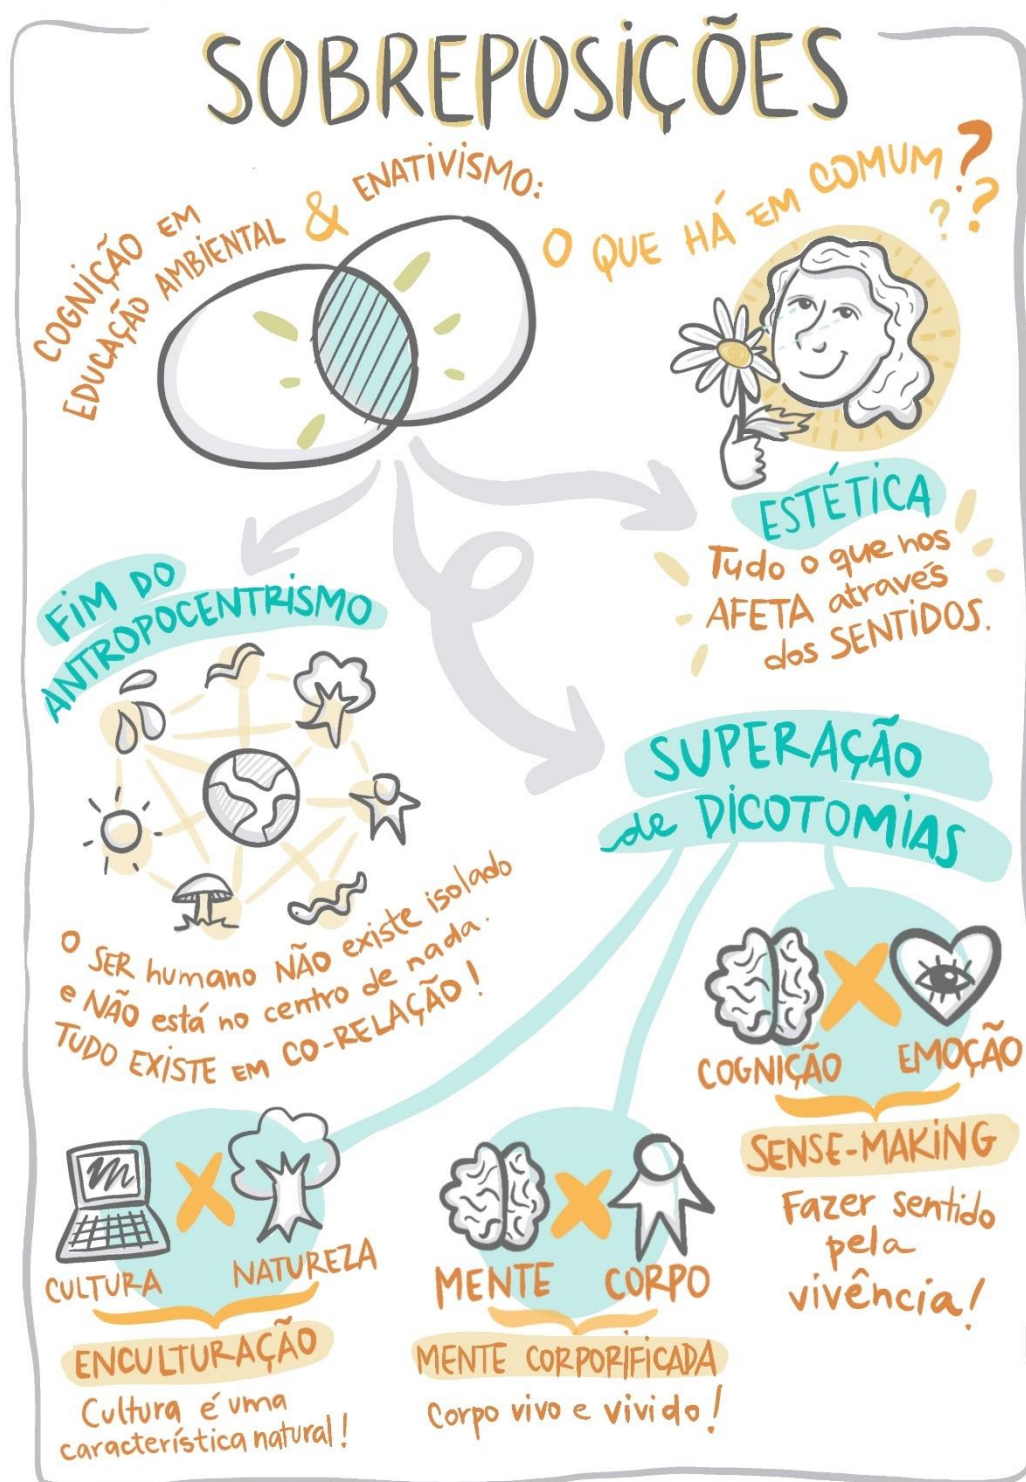 SOBREPOSIÇÕES
COGNIÇÃO EM
EDUCAÇÃO AMBIENTAL & ENATIVISMO:
O QUE HÁ EM COMUM???
ESTÉTICA
Tudo o que nos
AFETA através
dos SENTIDOS.
FIM DO
ANTROPOCENTRISMO
O SER humano NÃO existe isolado
e NÃO está no centro de nada.
TUDO EXISTE EM CO-RELAÇÃO!
SUPERAÇÃO
de DICOTOMIAS
COGNIÇÃO X EMOÇÃO
SENSE-MAKING
Fazer sentido
pela
vivência!
CULTURA X NATUREZA
ENCULTURAÇÃO
Cultura é uma
característica natural!
MENTE X CORPO
MENTE CORPORIFICADA
Corpo vivo e vivido!